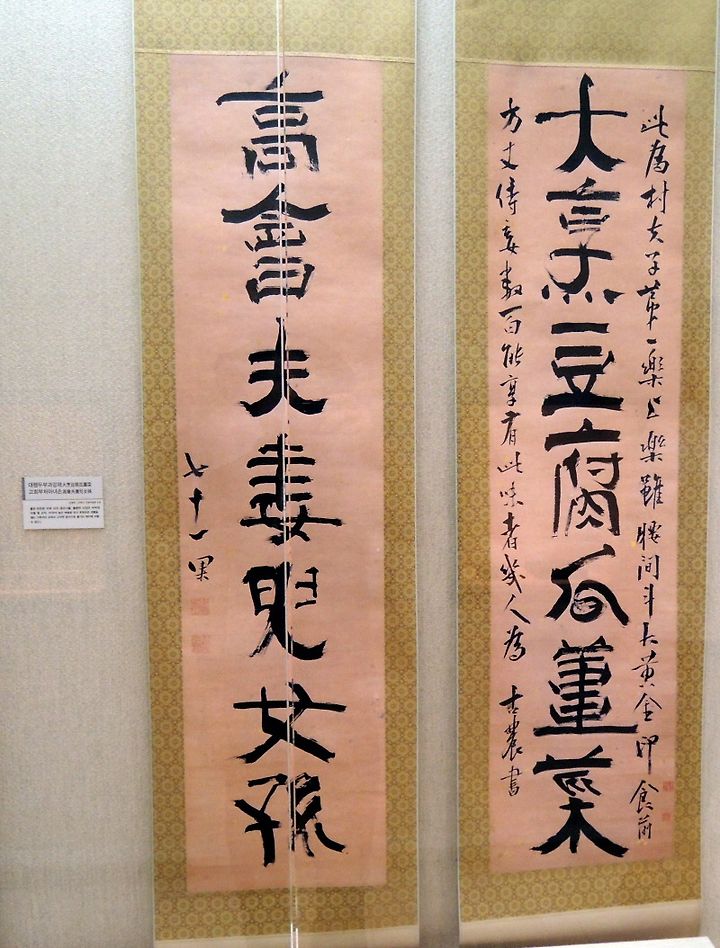 此爲村夫子第一樂上樂雖腰間斗大黃金印食前
大烹豆腐瓜薑菜
方丈侍妾數百能享有此味者幾人爲 古農書
高會夫妻兒女孫
七十一果
대팽두부과강채大烹豆腐瓜薑菜
고회부처아녀손高會夫妻兒女孫